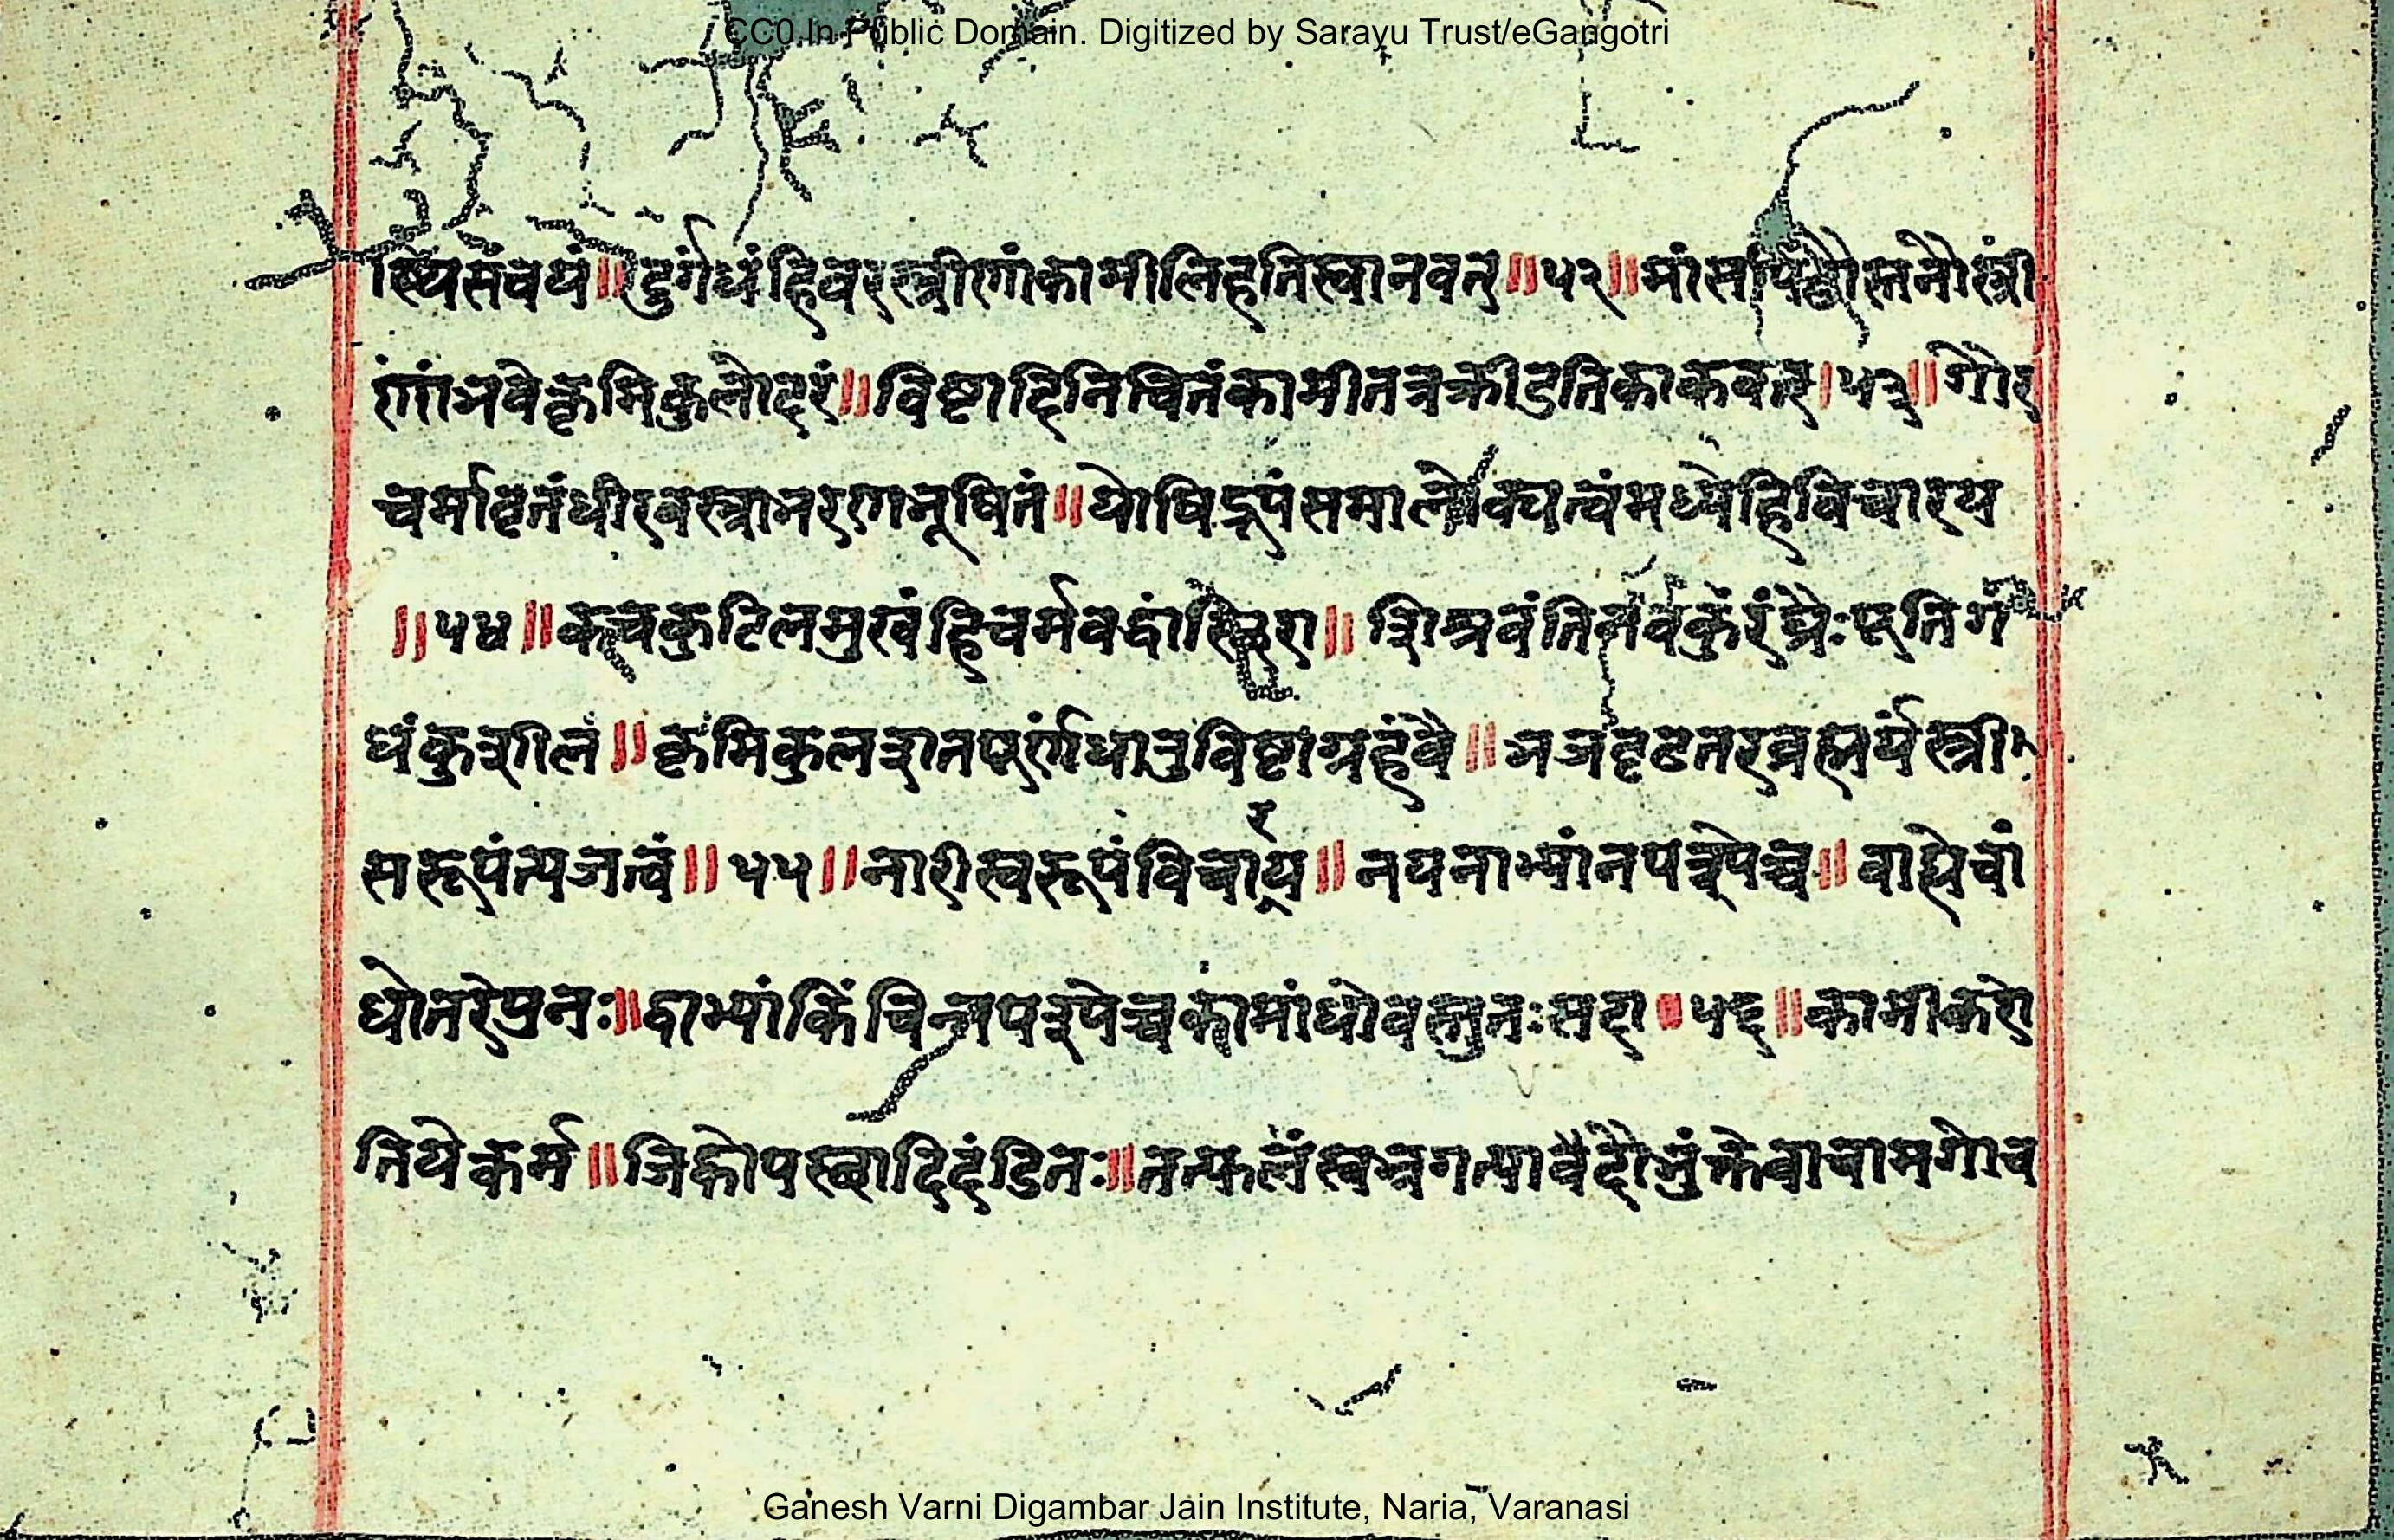 CC0 In Public Domain. Digitized by Sarayu Trust/eGangotri
स्थिसंचयं॥दुर्गंधंहिवरस्त्रीणांकामीलिहतिस्वानवत्॥५२॥मांसपिंडौस्तनौस्त्री
णांभवेत्कृमिकुलोदरं॥विष्टादिनिचितंकामीतत्रक्रीडतिकाकवत्।५३॥गौर
चर्मावृतंधीरवस्त्राभरणभूषितं॥योषिद्रूपंसमालोक्यत्वंमध्येहिविचारय
॥५४॥कचकुटिलमुखंहिचर्मवद्धांस्थि शिश्रवंति पूतिगं
धंकुशीलं॥कृमिकुलशतपूर्णंधातुविष्टाग्रहंवै॥भजदृढतरब्रह्मर्यंस्त्री
सरूपंत्यजत्वं॥५५॥नारीस्वरूपंविचार्य॥नयनाभ्यांनपश्येच्च॥बाह्येचां
धोनरेप्रनः॥द्वाभ्यांकिंचिन्नपश्येच्चकामांधोवस्तुतःसदा॥५६॥कामीकरो
तियेकर्म॥जिह्वोपस्थादिदंडितः॥तत्फलंस्वभ्रगत्यावैदौभुंक्तेवाचामगोच
Ganesh Varni Digambar Jain Institute, Naria, Varanasi